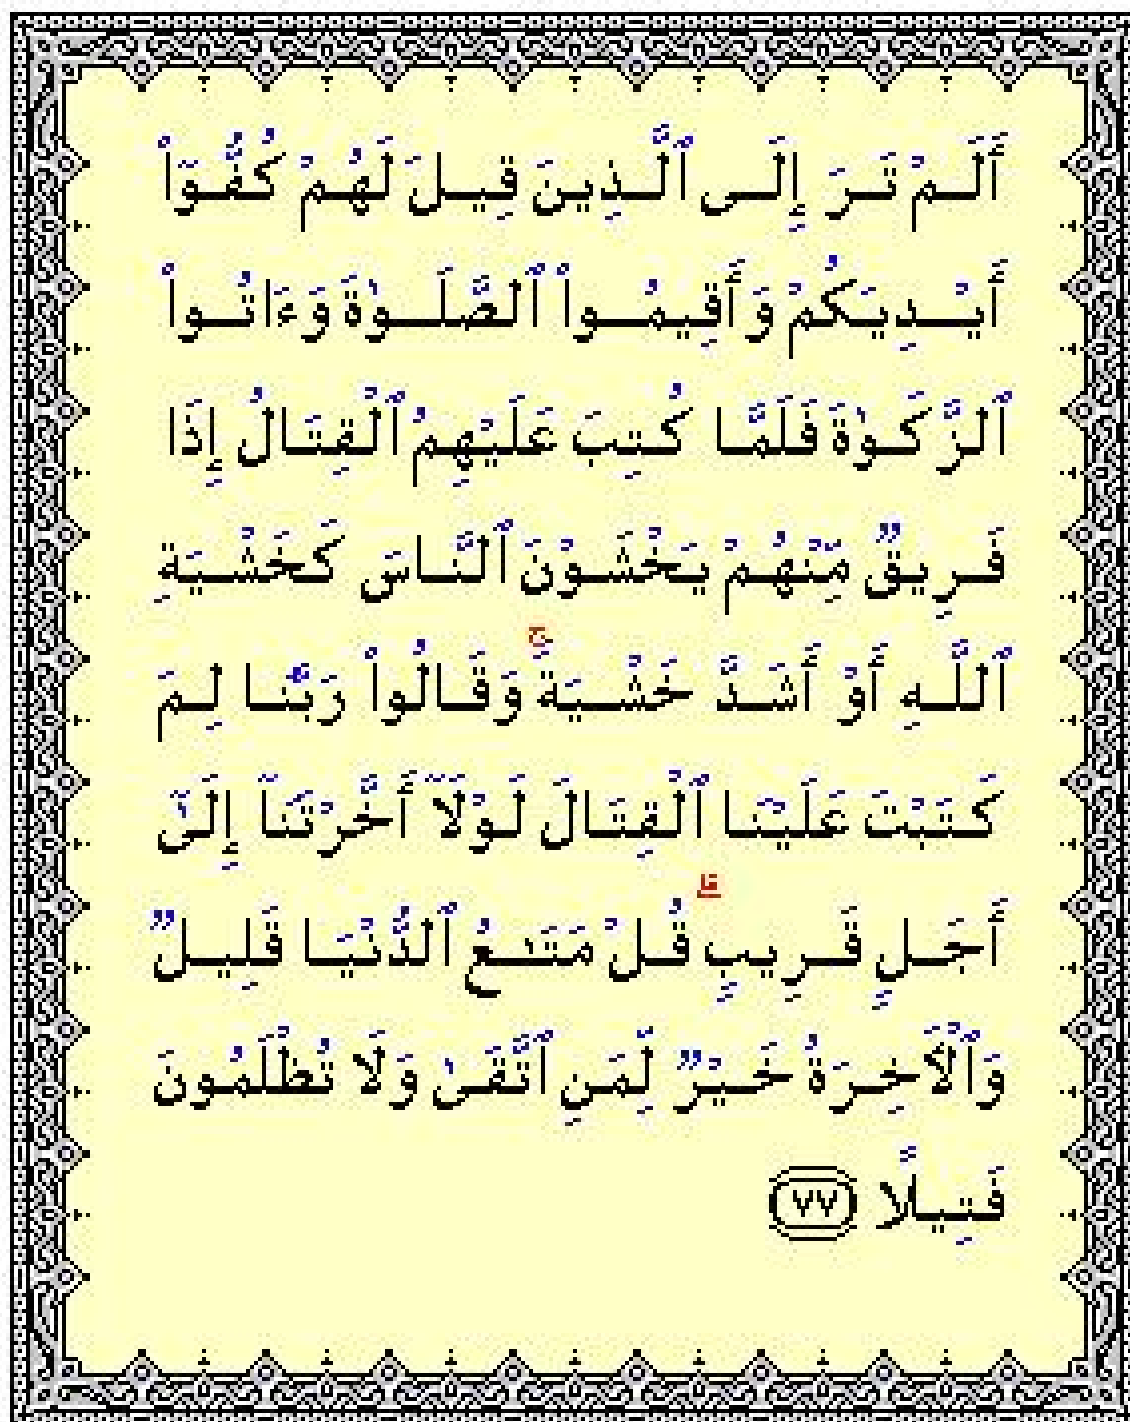 أَلَمْ تَرَ إِلَى ٱلَّذِينَ قِيلَ لَهُمْ كُفُّوٓا۟
أَيْدِيَكُمْ وَأَقِيمُوا۟ ٱلصَّلَوٰةَ وَءَاتُوا۟
ٱلزَّكَوٰةَ فَلَمَّا كُتِبَ عَلَيْهِمُ ٱلْقِتَالُ إِذَا
فَرِيقٌ مِّنْهُمْ يَخْشَوْنَ ٱلنَّاسَ كَخَشْيَةِ
ٱللَّهِ أَوْ أَشَدَّ خَشْيَةً ۚ وَقَالُوا۟ رَبَّنَا لِمَ
كَتَبْتَ عَلَيْنَا ٱلْقِتَالَ لَوْلَآ أَخَّرْتَنَآ إِلَىٰٓ
أَجَلٍ قَرِيبٍ ۗ قُلْ مَتَـٰعُ ٱلدُّنْيَا قَلِيلٌ
وَٱلْـَٔاخِرَةُ خَيْرٌ لِّمَنِ ٱتَّقَىٰ وَلَا تُظْلَمُونَ
فَتِيلًا ٧٧